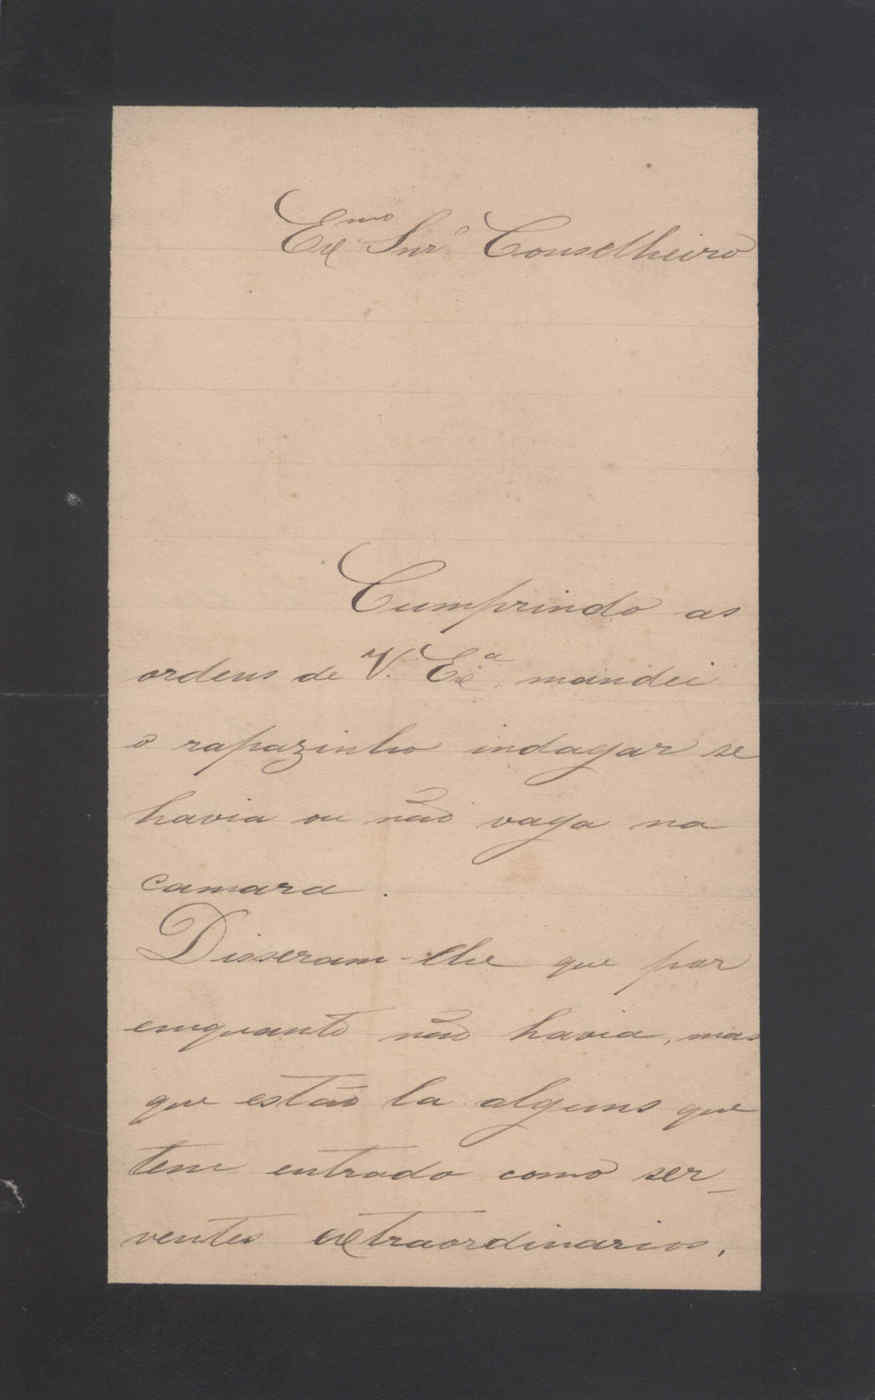 Exmo Snr. Conselheiro
Cumprindo as
ordens de V. Exa. mandei
o rapazinho indagar se
havia ou não vaga na
camara.
Disseram-lhe que por
emquanto não havia, mas
que estão la alguns que
tem entrado como ser-
ventes extraordinarios,